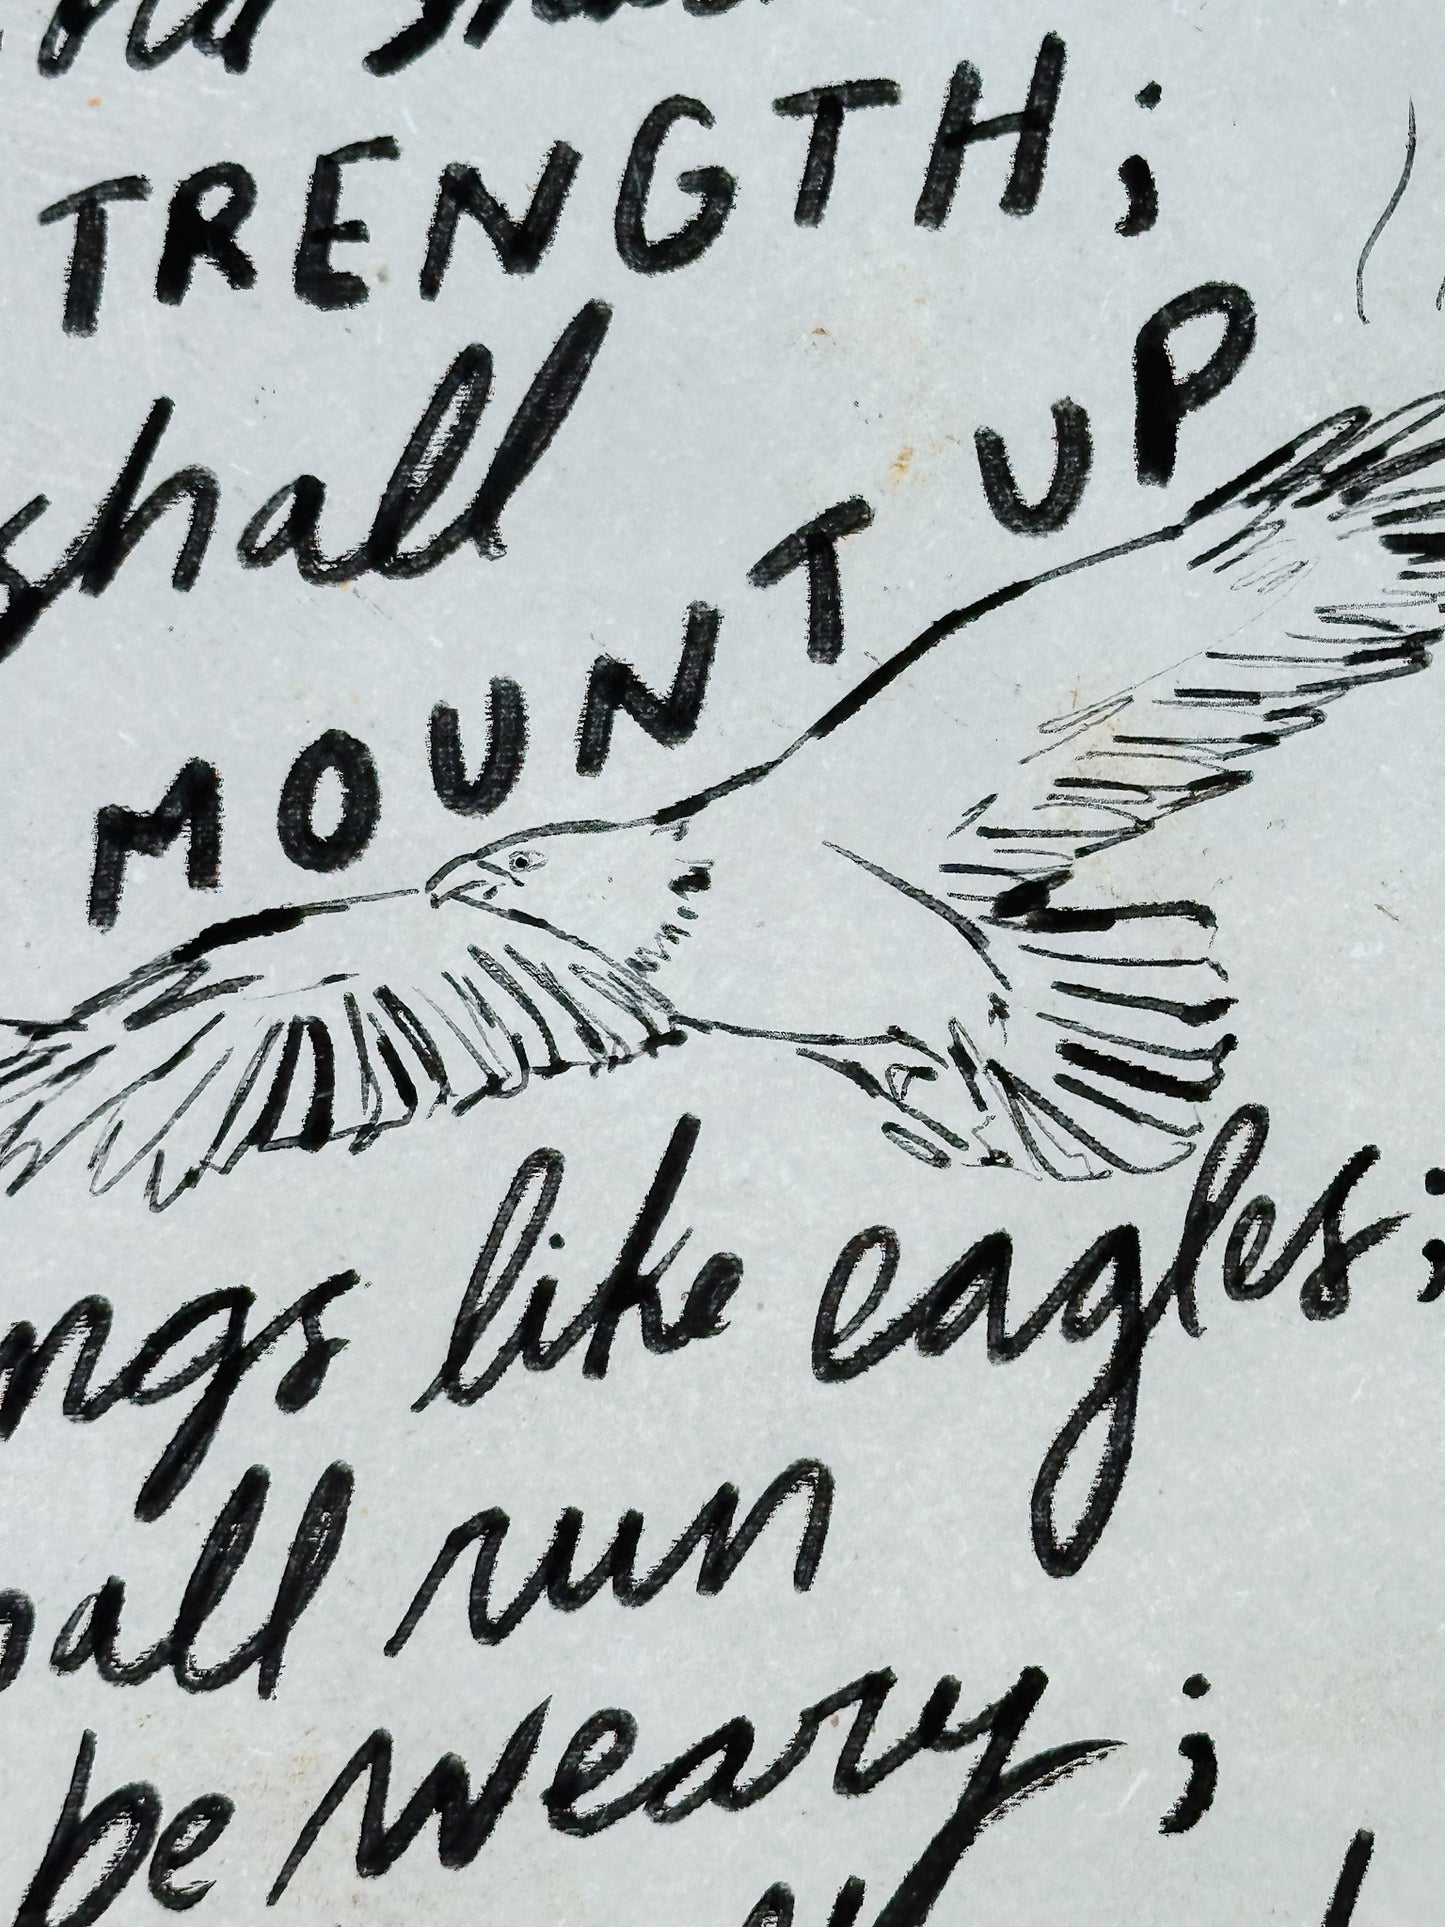 TRENGTH;
shall
MOUNT UP
ngs like eagles;
all run
be weary;